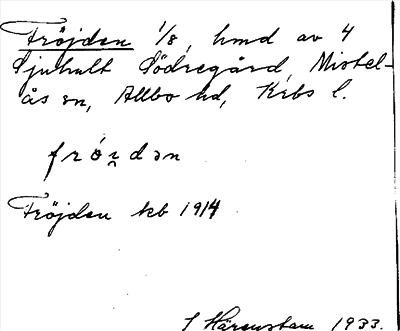 Fröjden 1/8, hmd av 4
Sjuhult Södregård, Mistel-
ås sn, Allbo hd, Krbs l.
fró̀i̯dən
Fröjden kb 1914
S Härenstam 1933.